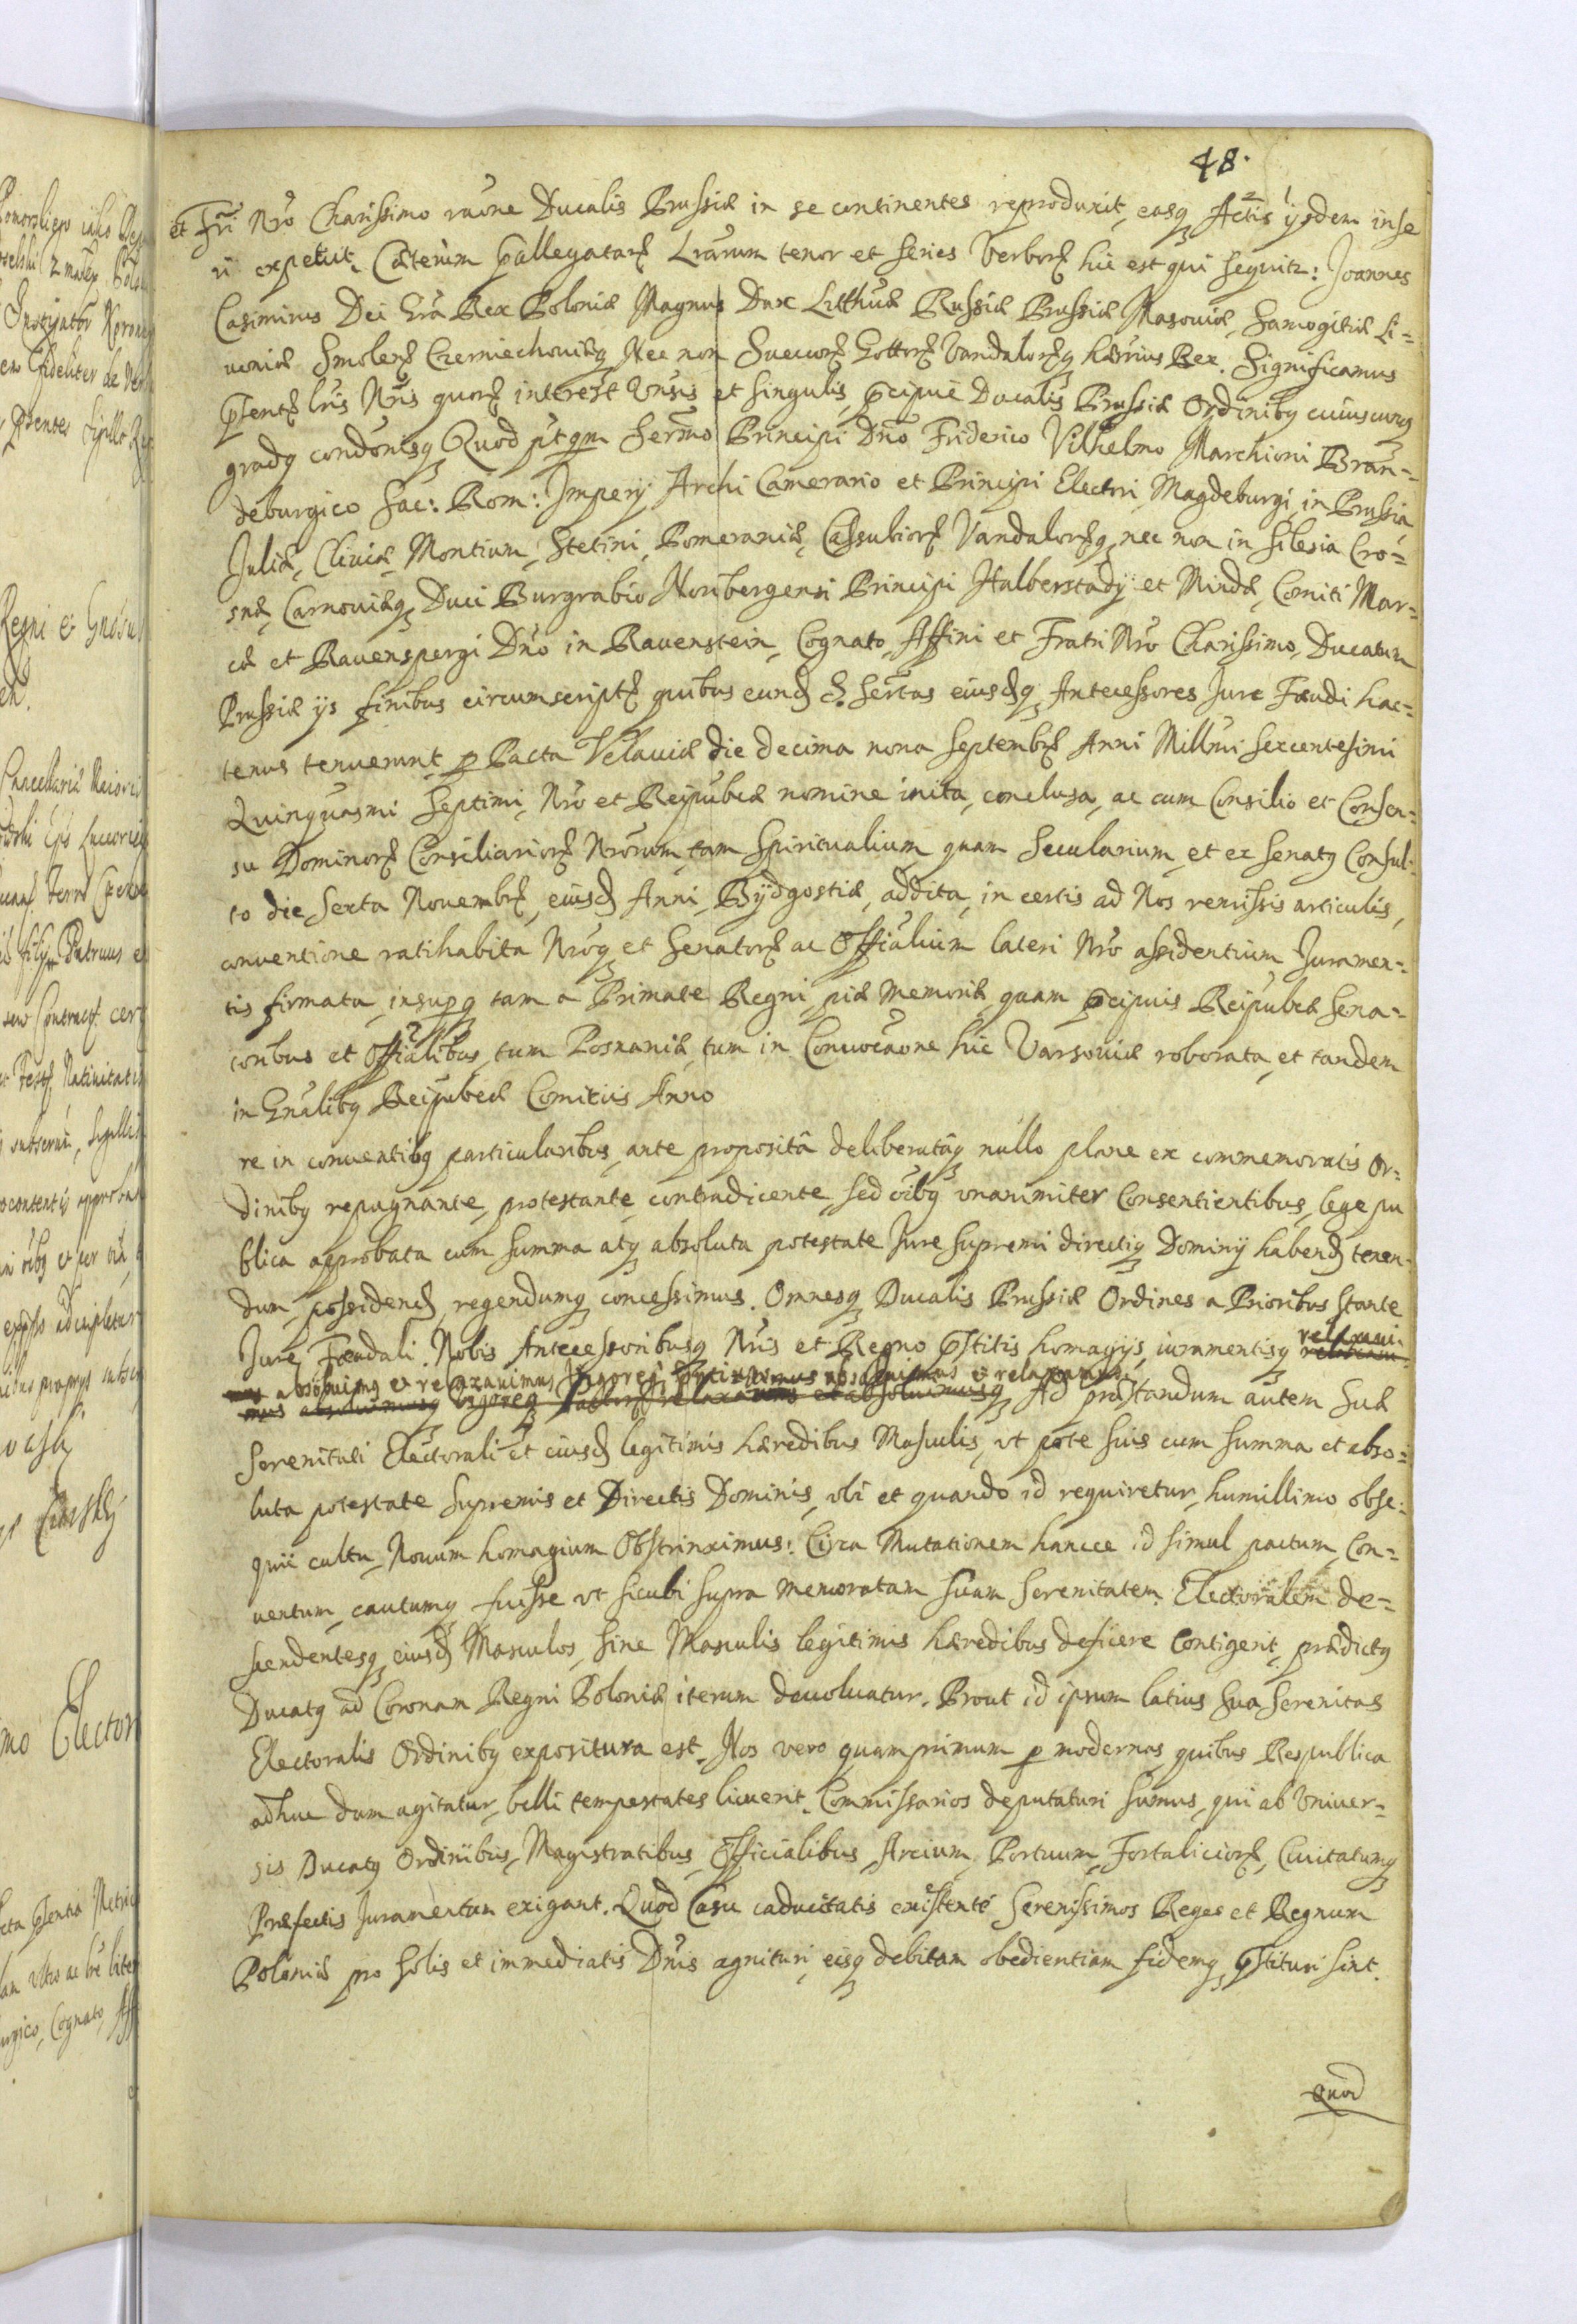 48.
et Fri Nro Charissimo raone Ducalis Prussiæ in se continentes reproduxit, easq Actis ijsdem inse
ri expetiit. Cæterum pallegatarum Lrarum tenor et series Verborum hic est qui sequitr: Joannes
Casimirus Dei Gra Rex Poloniæ Magnus Dux Litthuæ Russiæ Prussiæ Masouiæ, Samogitiæ Li-
uoniæ Smolens Czerniechouiæq Nec non Suecorum Gottorum Vandalorumq hærius Rex. Significamus
psentibs lris Nris quorum interest Vnsis et singulis, pcipue Ducalis Prussiæ Ordinibq cuiuscunq
gradq condonisq Quod
Sermo Principi Dno Friderico Vilhelmo Marchioni Bran-
deburgico Sac: Rom: Imperij Archi Camerario et Principi Electri, Magdeburgi, in Prussia,
Juliæ, Cliuiæ, Montium, Stetini, Pomeraniæ, Cassubiorum Vandalorumq, nec non in Silesia Cro-
snæ, Carnouiæq Duci Burgrabio Noribergensi Principi Halberstadij et Mindæ, Comiti Mar-
cæ et Rauenspergi Dno in Rauenstein, Cognato, Affini et Fratri Nro Charissimo, Ducatum
Prussiæ ijs finibus circumscriptum quibus eund S. Sertas eiusdq Antecessores Jure Fæudi hac-
tenus tenuerunt, p Pacta Velauiæ die decima nona Septembris Anni Millmi sexcentesimi
Quinquasmi Septimi, Nro et Reipubcæ nomine inita, conclusa, ac cum Consilio et Consen-
su Dominorum Consiliariorum Nrorum, tam Spiritualium quam Secularium, et ex Senatq Consul-
to die Sexta Nouembris, eiusd Anni, Bÿdgostiæ, addita, in certis ad Nos remissis articulis,
conuentione ratihabita Nroq et Senatorum ac Officialium lateri Nro assidentium Juramen-
tis firmata, insupq tam a Primate Regni piæ memoriæ, quam pcipuis Reipubcæ Sena-
toribus et Officialibus, tum Posnaniæ, tum in Conuocaone hic Varsouiæ roborata, et tandem
in Gnalibq Reipubcæ Comitiis Anno
re in conuentibq particularibus, ante proposita deliberataq nullo plane ex commemoratis Or-
dinibq repugnante, protestante, contradicente, sed oibq vnanimiter Consentientibus, lege pu
blica approbata cum summa atq absoluta potestate Jure supremi directiq Dominij habend tenen-
dum, possidend, regendumq concessimus. Omnesq Ducalis Prussiæ Ordines a Prioribus stante
Jure Fœudali, Nobis Antecessoribusq Nris et Regno pstitis homagijs, iuramentisq relaxaui-
mus absoluimq et relaxauimus
mus absoluimusq Vigoreq Pactorum relaxauimus et absoluimusq Ad præstandum autem Suæ
Serenitati Electorali et eiusd legitimis hæredibus Masculis, vt pote suis cum summa et abso-
luta potestate Supremis et Directis Dominis, vbi et quando id requiretur, humillimo obse-
quii cultu, Nouum homagium Obstrinximus: Circa Mutationem hancce id simul pactum, Con-
uentum, cautumq fuisse vt sicubi supra memoratam suam Serenitatem Electoralem de-
scendentesq eiusd Masculos, sine Masculis legitimis hæredibus deficere Contigerit, prædictq
Ducatq ad Coronam Regni Poloniæ iterum deuoluatur. Prout id ipsum latius Sua Serenitas
Electoralis Ordinibq expositura est. Nos vero quamprimum p modernas quibus Respublica
adhuc dum agitatur, belli tempestates licuerit, Commissarios deputaturi sumus, qui ab Vniuer-
sis Ducatq Ordinibus, Magistratibus, Officialibus, Arcium, Portuum, Fortaliciorum, Ciuitatumq
Præfectis Juramentum exigant. Quod Casu caducitatis existente Serenissimos Reges et Regnum
Poloniæ pro Solis et immediatis Dnis agnituri, eisq debitam obedientiam fidemq pstituri sint.
Quod